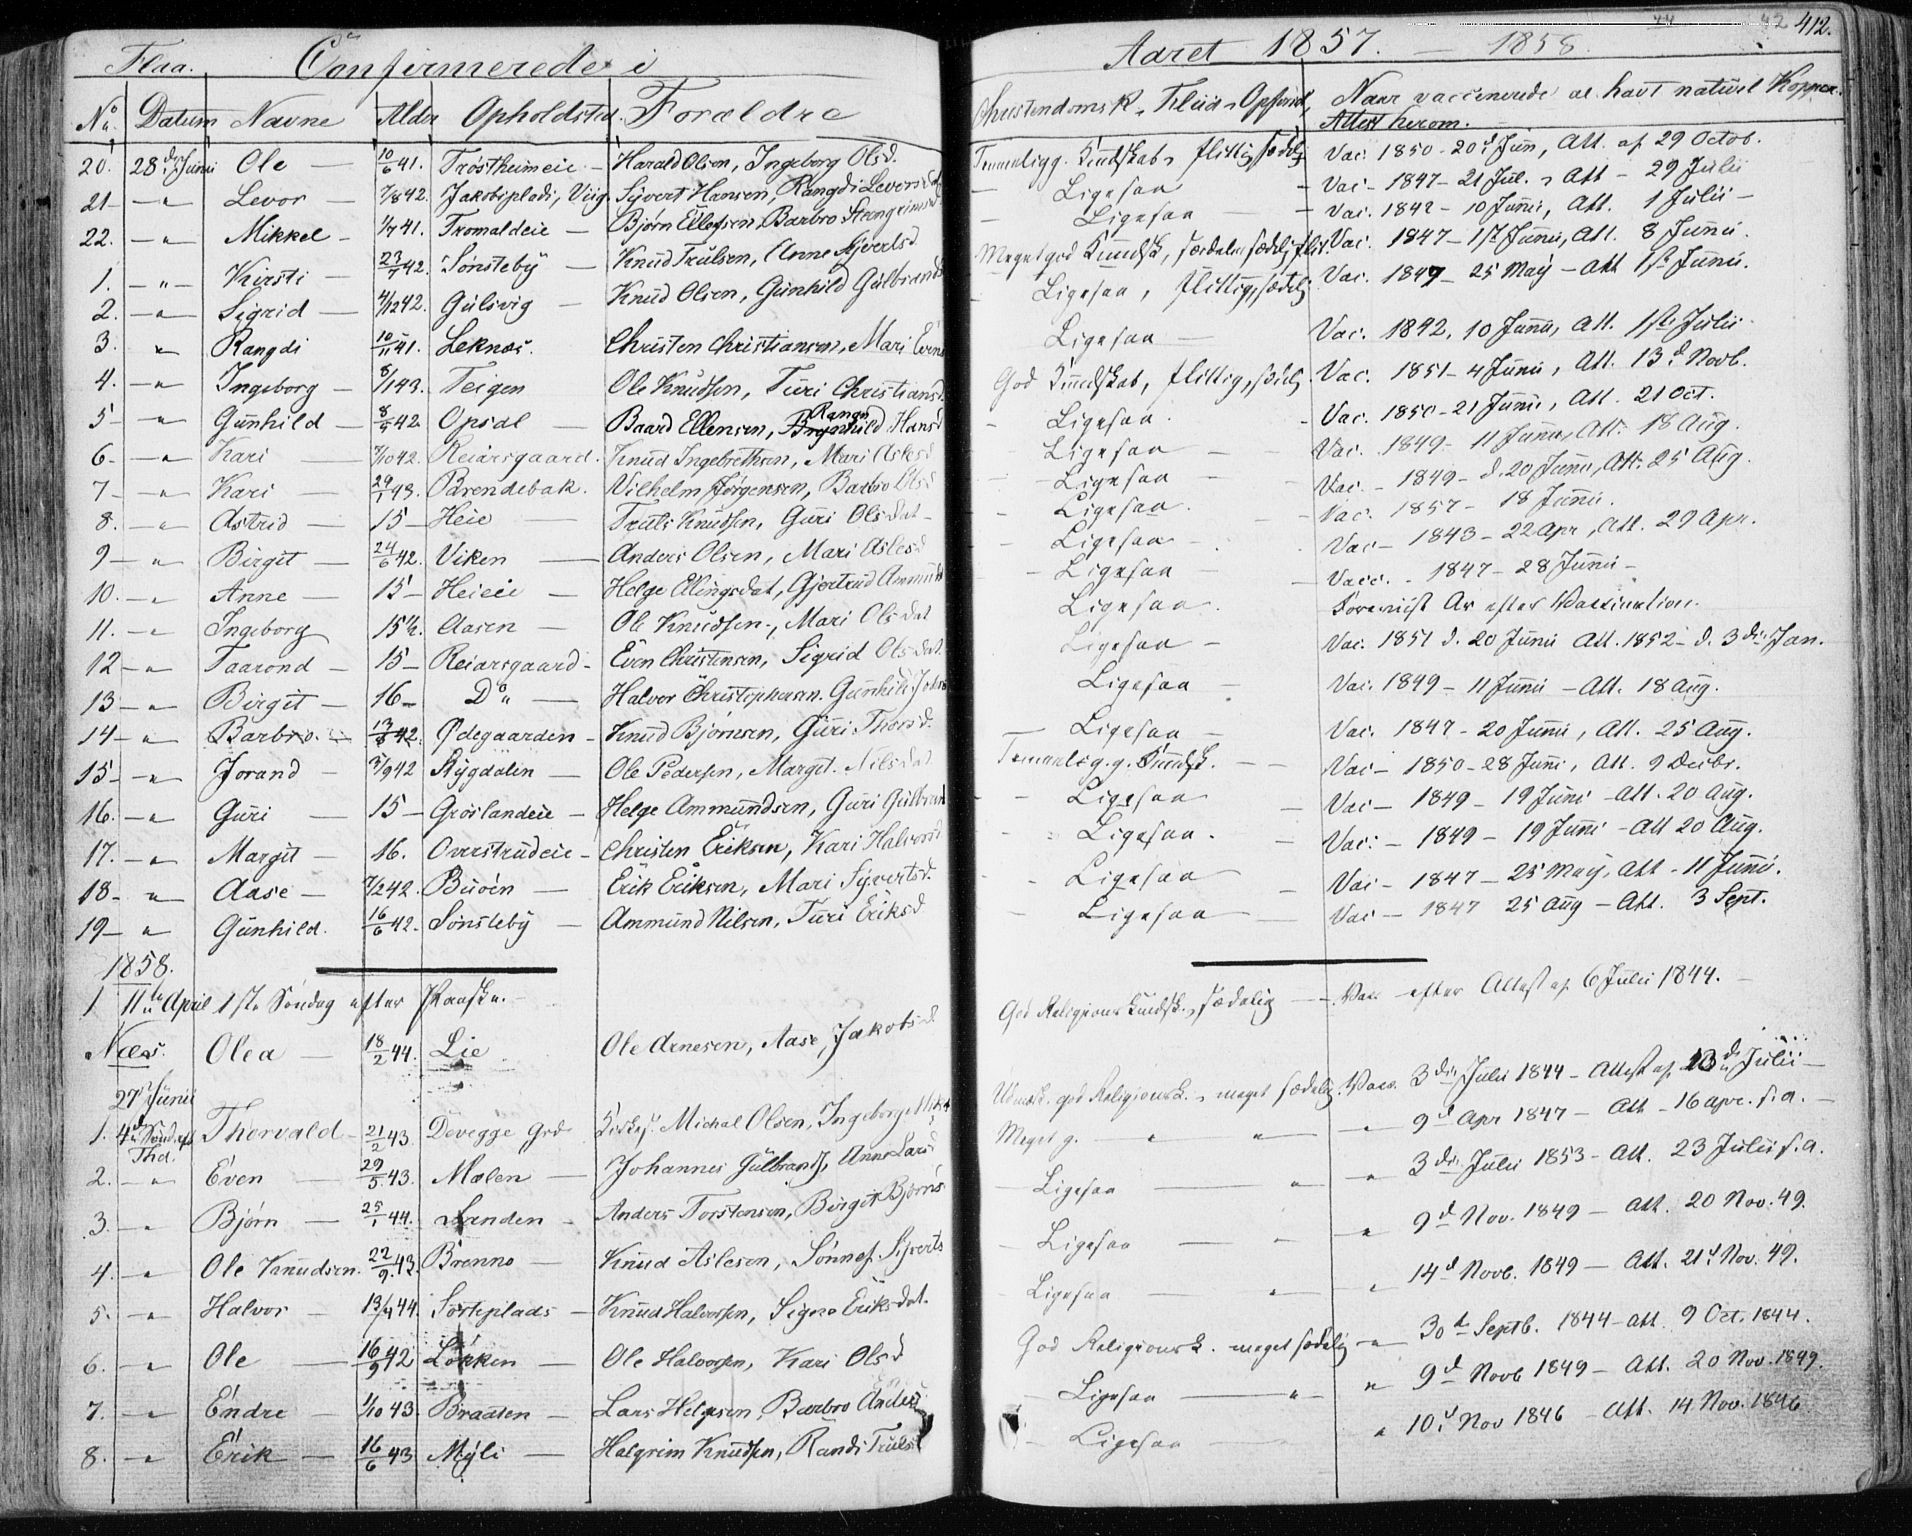 42 412.
Flaa. Confirmerede i Aaret 1857. — 1858.
No. Datum Navne Alder Opholdsted. Forældre Christendomsk. Fliid Opførsel, Naar vaccinerede al. havt naturl. Kopper.
Attest herom.
20. 28de Junii Ole — 10/6 41. Trøstheimeie — Harald Olsen, Ingeborg Olsd. Temmelig g. Kundskab, flittig, sædelig Vac. 1850 - 20d Jun, Att. af 29 Octob.
21 — " — Levor — 7/8 42. Jakobsplads, Viig. Sjvert Hansen, Rangdi Levorsdat — Ligesaa — Vac - 1847 - 21 Jul. Att - 29 Julii
22. — " — Mikkel — 1/7 41. Tromaldeie — Bjørn Ellefsen Barbro Steengrimsd — Ligesaa — Vac. 1842 - 10 Junii, Att. 1 Julii -
1. — " — Kirsti — 23/ 42. Sønsteby — Knud Trulsen, Anne Sjvertsd Meget god Kundsk, særdeles sædelig, flit. Vac. 1847 - 1ste Junii, Att. 8 Junii.
2. — " — Sigrid — 4/12 42. Gulsvig — Knud Olsen, Gunhild Gulbrands — Ligesaa, flittig, sædelig Vac. 1847 - 25 May - Att 1ste Junii.
3. " Rangdi 10/11 41. Leknæs. Christen Christiansen, Mari Evens Ligesaa — Vac. 1842, 10 Junii, Att. 1ste Julii
4. — " — Ingeborg — 8/1 43. Teigen Ole Knudsen, Turi Christiansd God Kundskab, flittig, sædelig. Vac. 1851 - 4 Junii, Att. 13d Novb.
5 — " — Gunhild — 8/5 42 Opsal — Baard Ellensen, Rangnhild Hansd — Ligesaa. — Vac. 1850 - 21 Junii, Att. 21 Oct.
6 — " — Kari — 7/10 42. Reiarsgaard. Knud Ingebrethsen, Mari Aslesd — Ligesaa — Vac. 1849 - 11 Junii, Att. 18 Aug.
7 — " — Kari — 29/1 43. Børendebak. Vilhelm Jørgensen, Barbro Olsd — Ligesaa — Vac. - 1849 - d. 20 Junii, Att. 25 Aug.
8. — " — Astrid — 15 — Heie — Truls Knudsen, Guri Olsdat — Ligesaa. — Vac. 1857 - 18 Junii.
9 — " — Birgit — 24/6 42. Viken — Anders Olsen, Mari Aslesd — Ligesaa — Vac - 1843 - 22 Apr, Att. 29 Apr.
10. — " — Anne — 15 — Heieie — Helge Ellingsdat, Gjertrud Ammunds — Ligesaa — Vacc. - 1847 - 28 Junii -
11. — " — Ingeborg 15 1/2. Aasen — Ole Knudsen, Mari Olsdat Ligesaa. Forevist Ar efter Vaccination.
12 — " — Taarond — 15 — Reiarsgaard — Even Christensen, Sigrid Olsdat. Ligesaa — Vac. 1851 d. 20 Junii Att. 1852 - d. 3die Jan.
13 — " — Birgit — 16 — Do — Halvor Christophersen. Gunhild Ligesaa — Vac. 1849 - 11 Junii - Att. 18 Aug.
14 — " — Barbro. — 13/8 42. Ødegaarden — Knud Bjørnsen, Guri Thorsd. — Ligesaa — Vac. 1847 - 20 Junii, Att. 25 Aug.
15 — " — Jorand — 3/9 42 Rygdalen — Ole Pedersen, Margit. Nilsdat Temmelig g. Kundsk. — Vac - 1850 - 28 Juni, Att. 9 Decbr.
16. — " — Guri — 15 — Grøslandeie — Helge Ammundsen, Guri Gulbrand — Ligesaa — Vac - 1849 - 19 Juni - Att. 20 Aug.
17. — " — Margit — 16. Overstrudeie — Christen Eriksen, Kari Halvorsd — Ligesaa. — Vac: - 1849 - 19 Juni - Att 20 Aug.
18 — " Aase — 7/2 42. Buøen — Erik Eriksen, Mari Sjvertsd. — Ligesaa — Vac - 1847 - 25 May, Att - 11 Junii.
19 — " Gunhild. 16/6 42. Sønsteby — Ammund Nilsen, Turi Eriksd — Ligesaa — Vac - 1847 25 Aug - Att. 3 Sept.
1858.
1 11te April 1ste Søndag efter Paaske. —
Næs. Olea — 18/2 44. Lie Ole Arnesen, Aase Jakobsd God Religions Kundsk., sædelig — Vac. efter Attest af 6 Julii 1844. —
27 Junii
1. 4de Sønd. eft Thorvald — 21/2 43. Devegge Grd Michal Olsen, Ingeborg Udmærk. god Religionsk., meget sædelig. Vacc. 3die Julii 1844 - Attest af 13de Julii —
Thd.
2. — " Even — 29/5 43. Mælen — Johannes Gulbrands, Anne Larsd Meget g. " " " 9d Apr 1847 - Att - 16 apr. s.a. —
3. — " Bjørn — 25/1 44. Sanden — Anders Torstensen, Birgit Bjørns — Ligesaa — " — " 3die Julii 1853 - Att. 23 Julii s.a.
4. — " Ole Knudsen. 22/9 43. Brenno — Knud Aslesen, Sønnef. Sjverts — Ligesaa — " — " 9d Nov. 1849 - Att. 20 Nov. 49.
5. — " Halvor — 13/4 44. Sorteplads — Knud Halvorsen, Signe Eriksdat. — Ligesaa — " " 14d Novb. 1849 - Att. 21d Nov. 49.
6. — " Ole — 16/9 42 Løkken — Ole Halvorsen, Kari Olsd God Religionsk. meget sædelig — " 30d Septb. 1844 - Att. 9 Oct. 1844.
7. — " Endre — 1/10 43. Braaten — Lars Helgesen Barbro Anders — Ligesaa — " " 9d Novb 1849 - Att. 20 Nov. 1849.
8. — " Erik — 16/6 43 Myli — Halgrim Knudsen, Randi Truls — Ligesaa — " 10d Nov 1846 - Att. 14 Nov. 1846